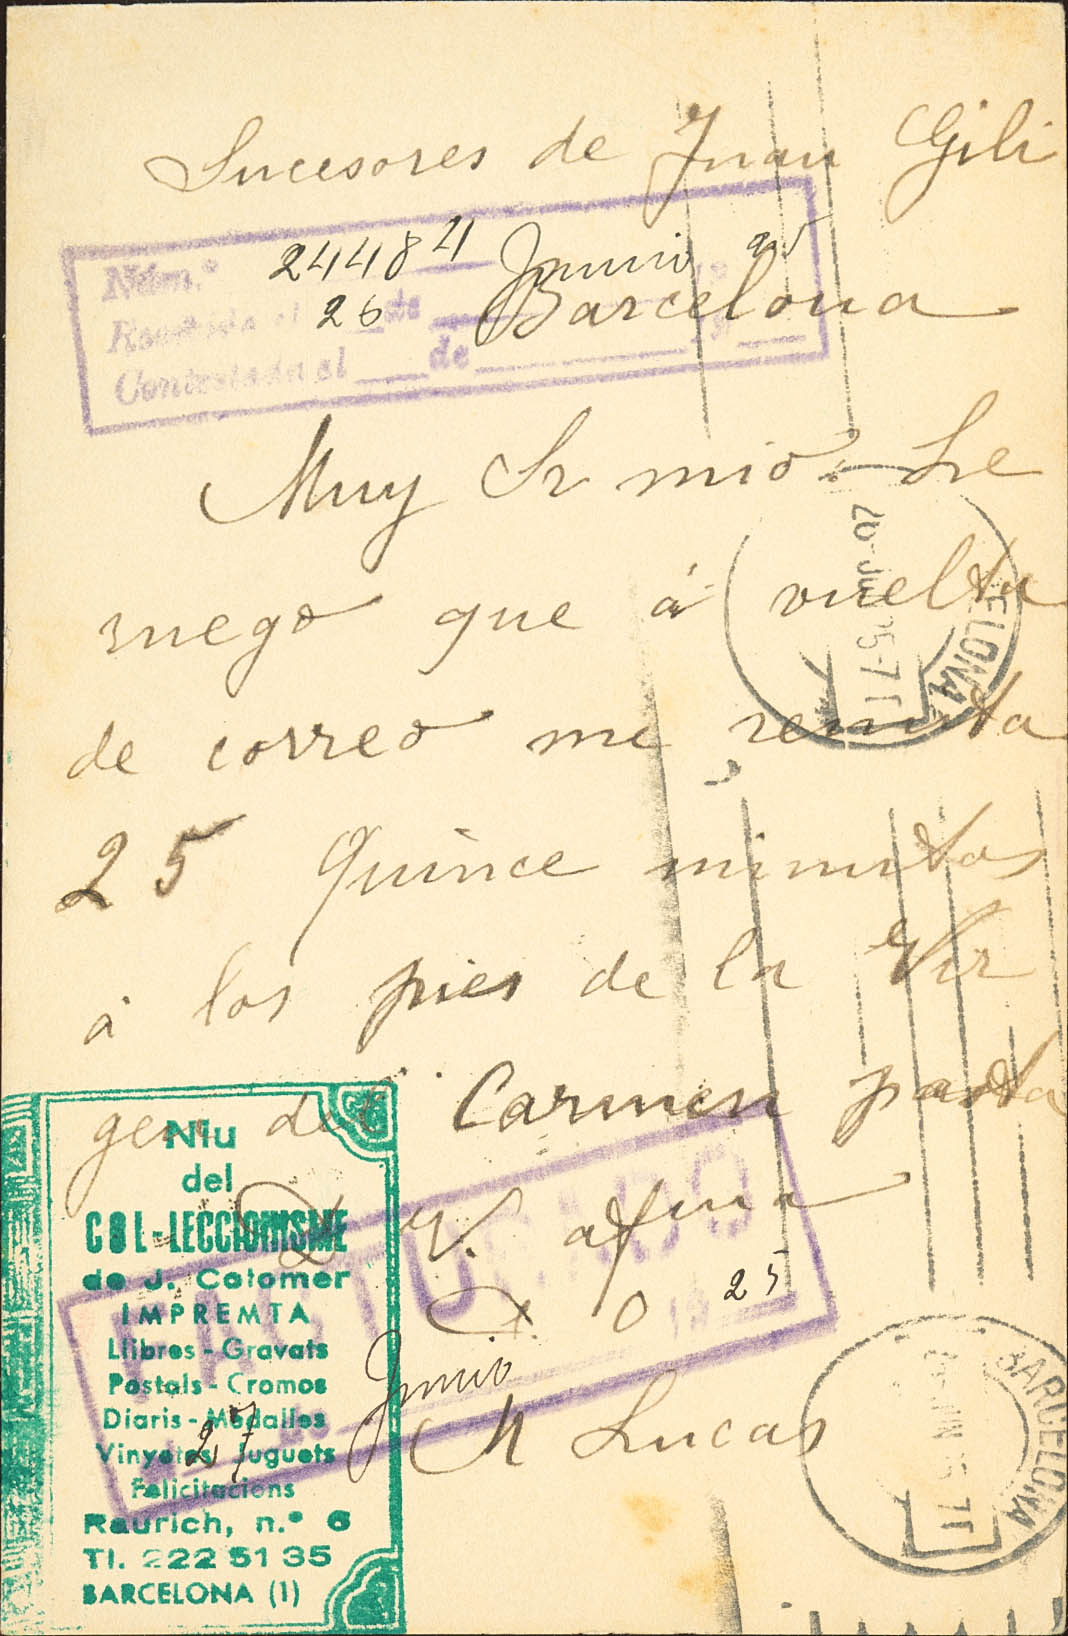 Sucesores de Juan Gili
Núm.º 24484
Recibida el 26 de Junio 25
Barcelona
Contestada el de 19
Muy Sr mio. Le
ruego que á vuelta
de correo me remita
25 Quince minutos
á los pies de la Vir
gen del Carmen pasta
V. afma
S. O
M Lucas
FACTURADO
27 Junio 1925
BARCELONA
BARCELONA
Niu
del
COL-LECCIONISME
de J. Colomer
IMPREMTA
Llibres - Gravats
Postals - Cromos
Diaris - Medalles
Vinyetes Juguets
Felicitacions
Raurich, n.º 6
Tl. 222 51 35
BARCELONA (1)